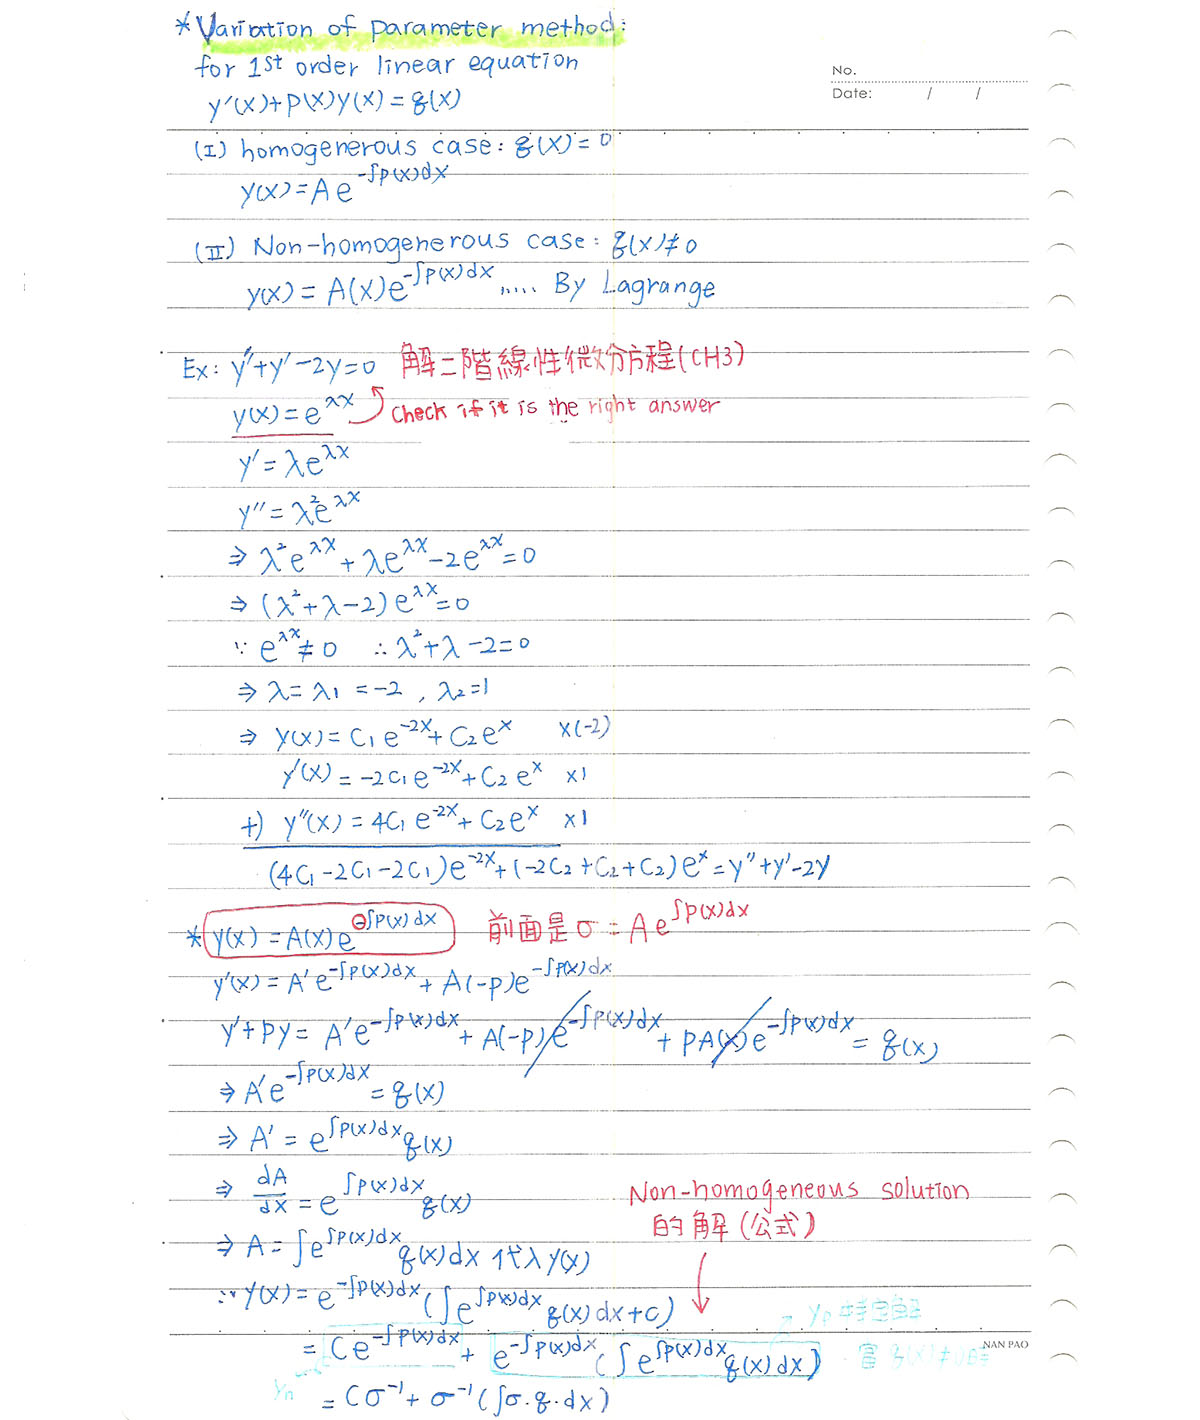 *Variation of parameter method:
for 1st order linear equation
No.
Date: / /
y'(x)+p(x)y(x)=q(x)
(I) homogenerous case: q(x)=0
y(x)=Ae^{-∫p(x)dx}
(II) Non-homogenerous case: q(x)≠0
y(x)=A(x)e^{-∫p(x)dx}..... By Lagrange
Ex: y''+y'-2y=0 解二階線性微分方程(CH3)
y(x)=e^{λx} Check if it is the right answer
y'=λe^{λx}
y''=λ²e^{λx}
⇒ λ²e^{λx}+λe^{λx}-2e^{λx}=0
⇒ (λ²+λ-2)e^{λx}=0
∵ e^{λx}≠0 ∴ λ²+λ-2=0
⇒ λ=λ₁=-2, λ₂=1
⇒ y(x)=C₁e^{-2x}+C₂e^x x(-2)
y'(x)=-2C₁e^{-2x}+C₂e^x x1
+) y''(x)=4C₁e^{-2x}+C₂e^x x1
(4C₁-2C₁-2C₁)e^{-2x}+(-2C₂+C₂+C₂)e^x=y''+y'-2y
*y(x)=A(x)e^{-∫p(x)dx} 前面是σ=Ae^{∫p(x)dx}
y'(x)=A'e^{-∫p(x)dx}+A(-p)e^{-∫p(x)dx}
y'+py=A'e^{-∫p(x)dx}+A(-p)e^{-∫p(x)dx}+pA(x)e^{-∫p(x)dx}=q(x)
⇒ A'e^{-∫p(x)dx}=q(x)
⇒ A'=e^{∫p(x)dx}q(x)
⇒ dA/dx=e^{∫p(x)dx}q(x)
Non-homogeneous solution
的解(公式)
⇒ A=∫e^{∫p(x)dx}q(x)dx 代入y(x)
∴ y(x)=e^{-∫p(x)dx}(∫e^{∫p(x)dx}q(x)dx+c)
yp 特定解
=Ce^{-∫p(x)dx}+e^{-∫p(x)dx}(∫e^{∫p(x)dx}q(x)dx) 當q(x)≠0時
NAN PAO
yh
=Cσ⁻¹+σ⁻¹(∫σ·q·dx)